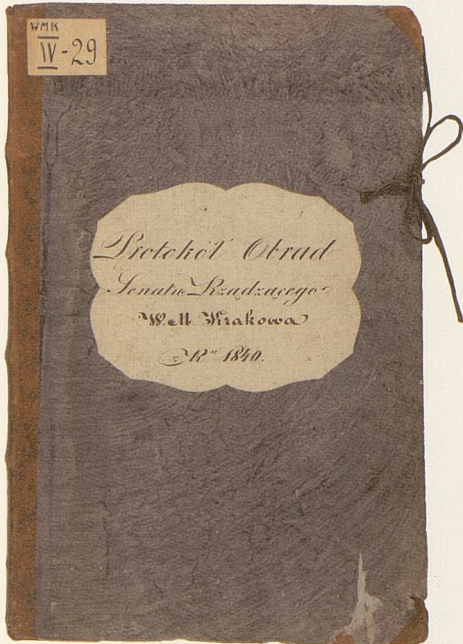 WMK
IV-29
Protokół Obrad
Senatu Rządzącego
W. M. Krakowa
z Rᵘ 1840.